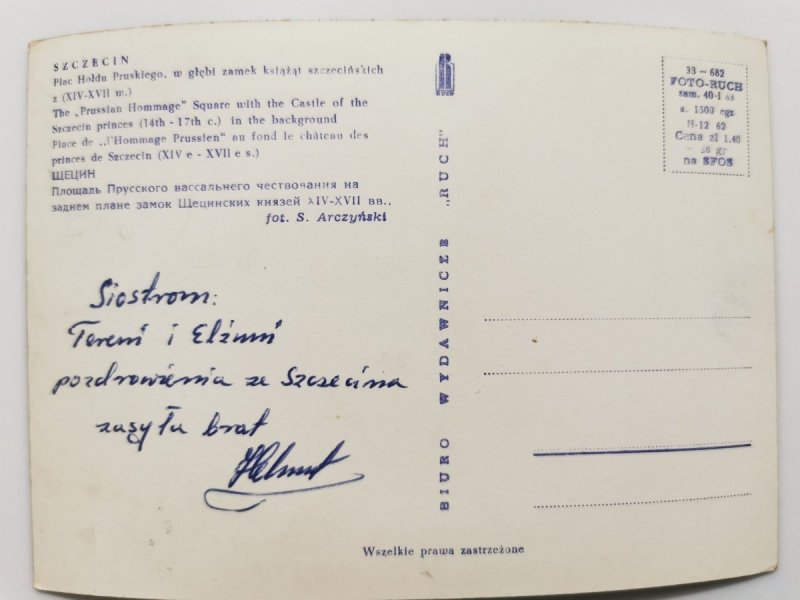 SZCZECIN
Plac Hołdu Pruskiego, w głębi zamek książąt szczecińskich
z (XIV-XVII w.)
The „Prussian Hommage" Square with the Castle of the
Szczecin princes (14th - 17th c.) in the background
Place de „l'Hommage Prussien" au fond le château des
princes de Szczecin (XIV e - XVII e s.)
ЩЕЦИН
Площаль Прусского вассального чествования на
заднем плане замок Щецинских князей XIV-XVII вв.,
fot. S. Arczyński
Siostrom:
Tereni i Elżuni
pozdrowienia ze Szczecina
zasyła brat
Helmut
RUCH
BIURO WYDAWNICZE „RUCH"
33 - 682
FOTO-RUCH
zam. 40-I
s. 1500 egz
H-12 62
Cena zł 1.40
+ 20 gr
na SFOS
Wszelkie prawa zastrzeżone